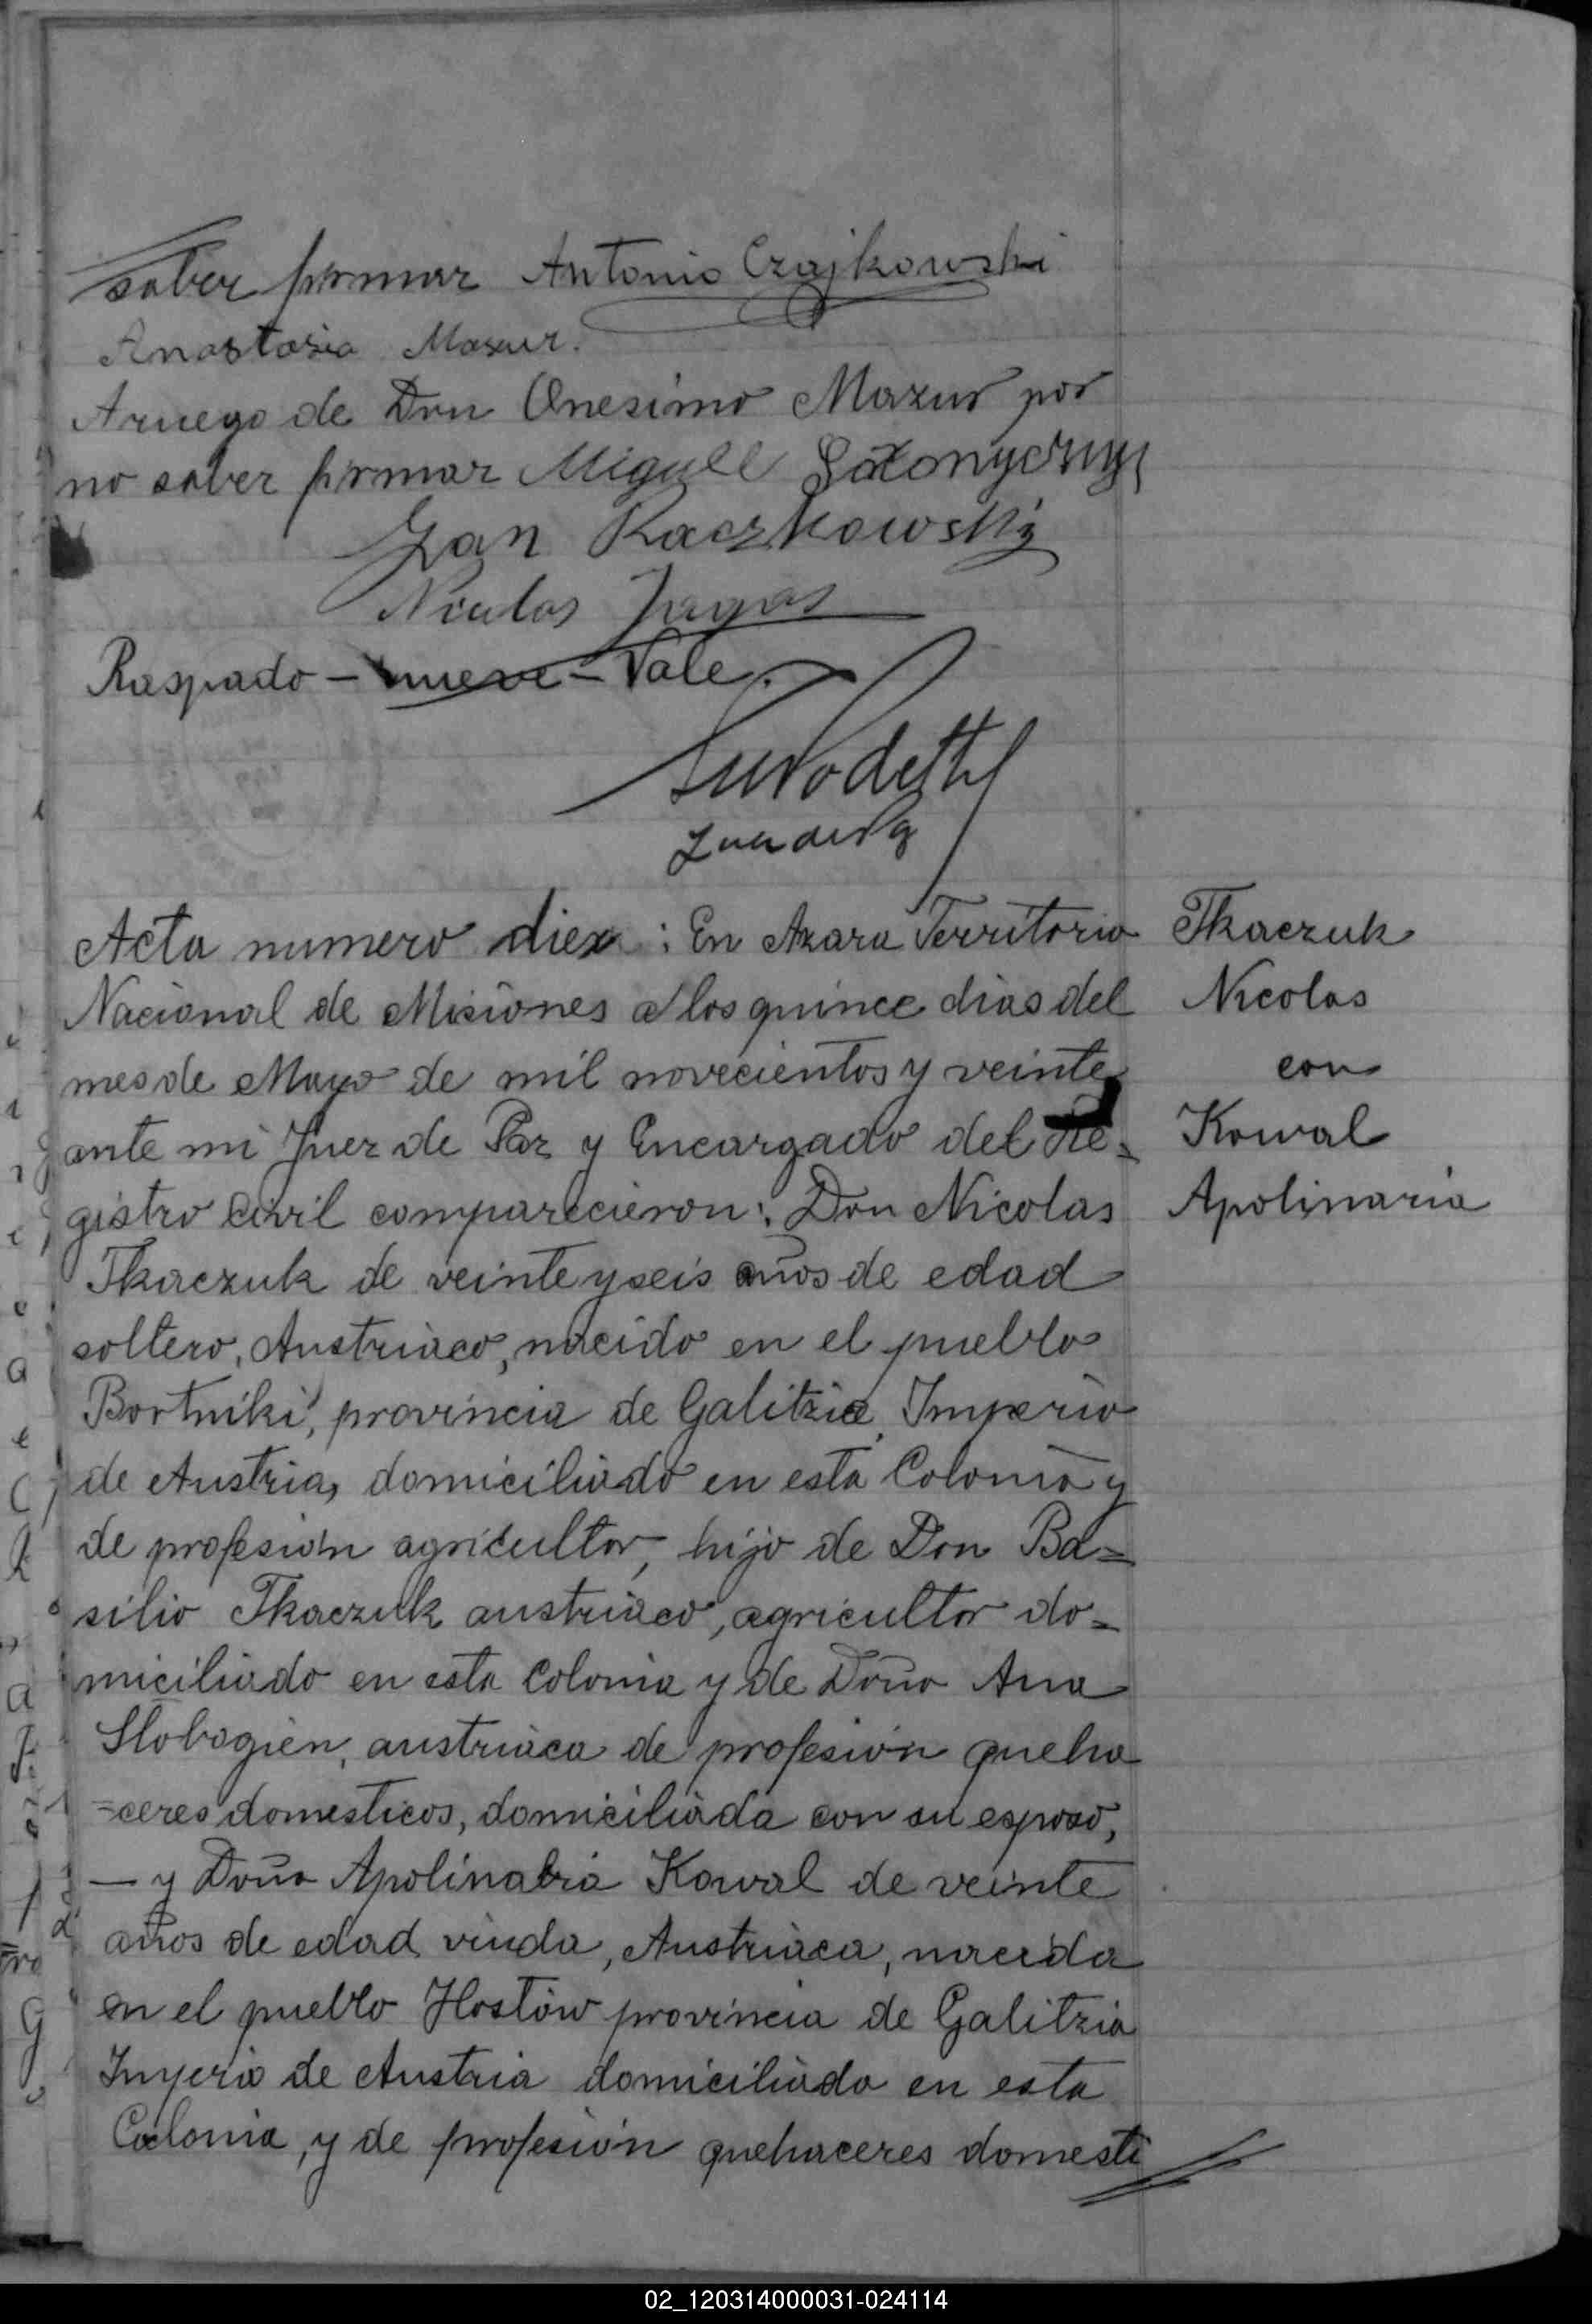 saber firmar Antonio Czajkowski
Anastasia Mazur.
Aruego de Don Onesimo Mazur por
no saber firmar Miguel
Jan Raczkowski
Nicolas Jagas
Raspado - nueve - Vale.
Acta numero diez : En Azara Territorio
Nacional de Misiones a los quince dias del
mes de Mayo de mil novecientos y veinte
ante mi Juez de Paz y Encargado del Re=
gistro Civil comparecieron: Don Nicolas
Tkaczuk de veinte y seis años de edad
soltero, Austriaco, nacido en el pueblo
Bortniki, provincia de Galitzia, Imperio
de Austria, domiciliado en esta Colonia y
de profesion agricultor, hijo de Don Ba=
silio Tkaczuk austriaco, agricultor do=
miciliado en esta Colonia y de Doña Ana
Slobogien, austriaca de profesion queha
=ceres domesticos, domiciliada con su esposo,
— y Doña Apolinaria Kowal de veinte
años de edad viuda, Austriaca, nacida
en el pueblo Hostów provincia de Galitzia
Imperio de Austria domiciliada en esta
Colonia, y de profesion quehaceres domesti
Tkaczuk
Nicolas
con
Kowal
Apolinaria
02_120314000031-024114